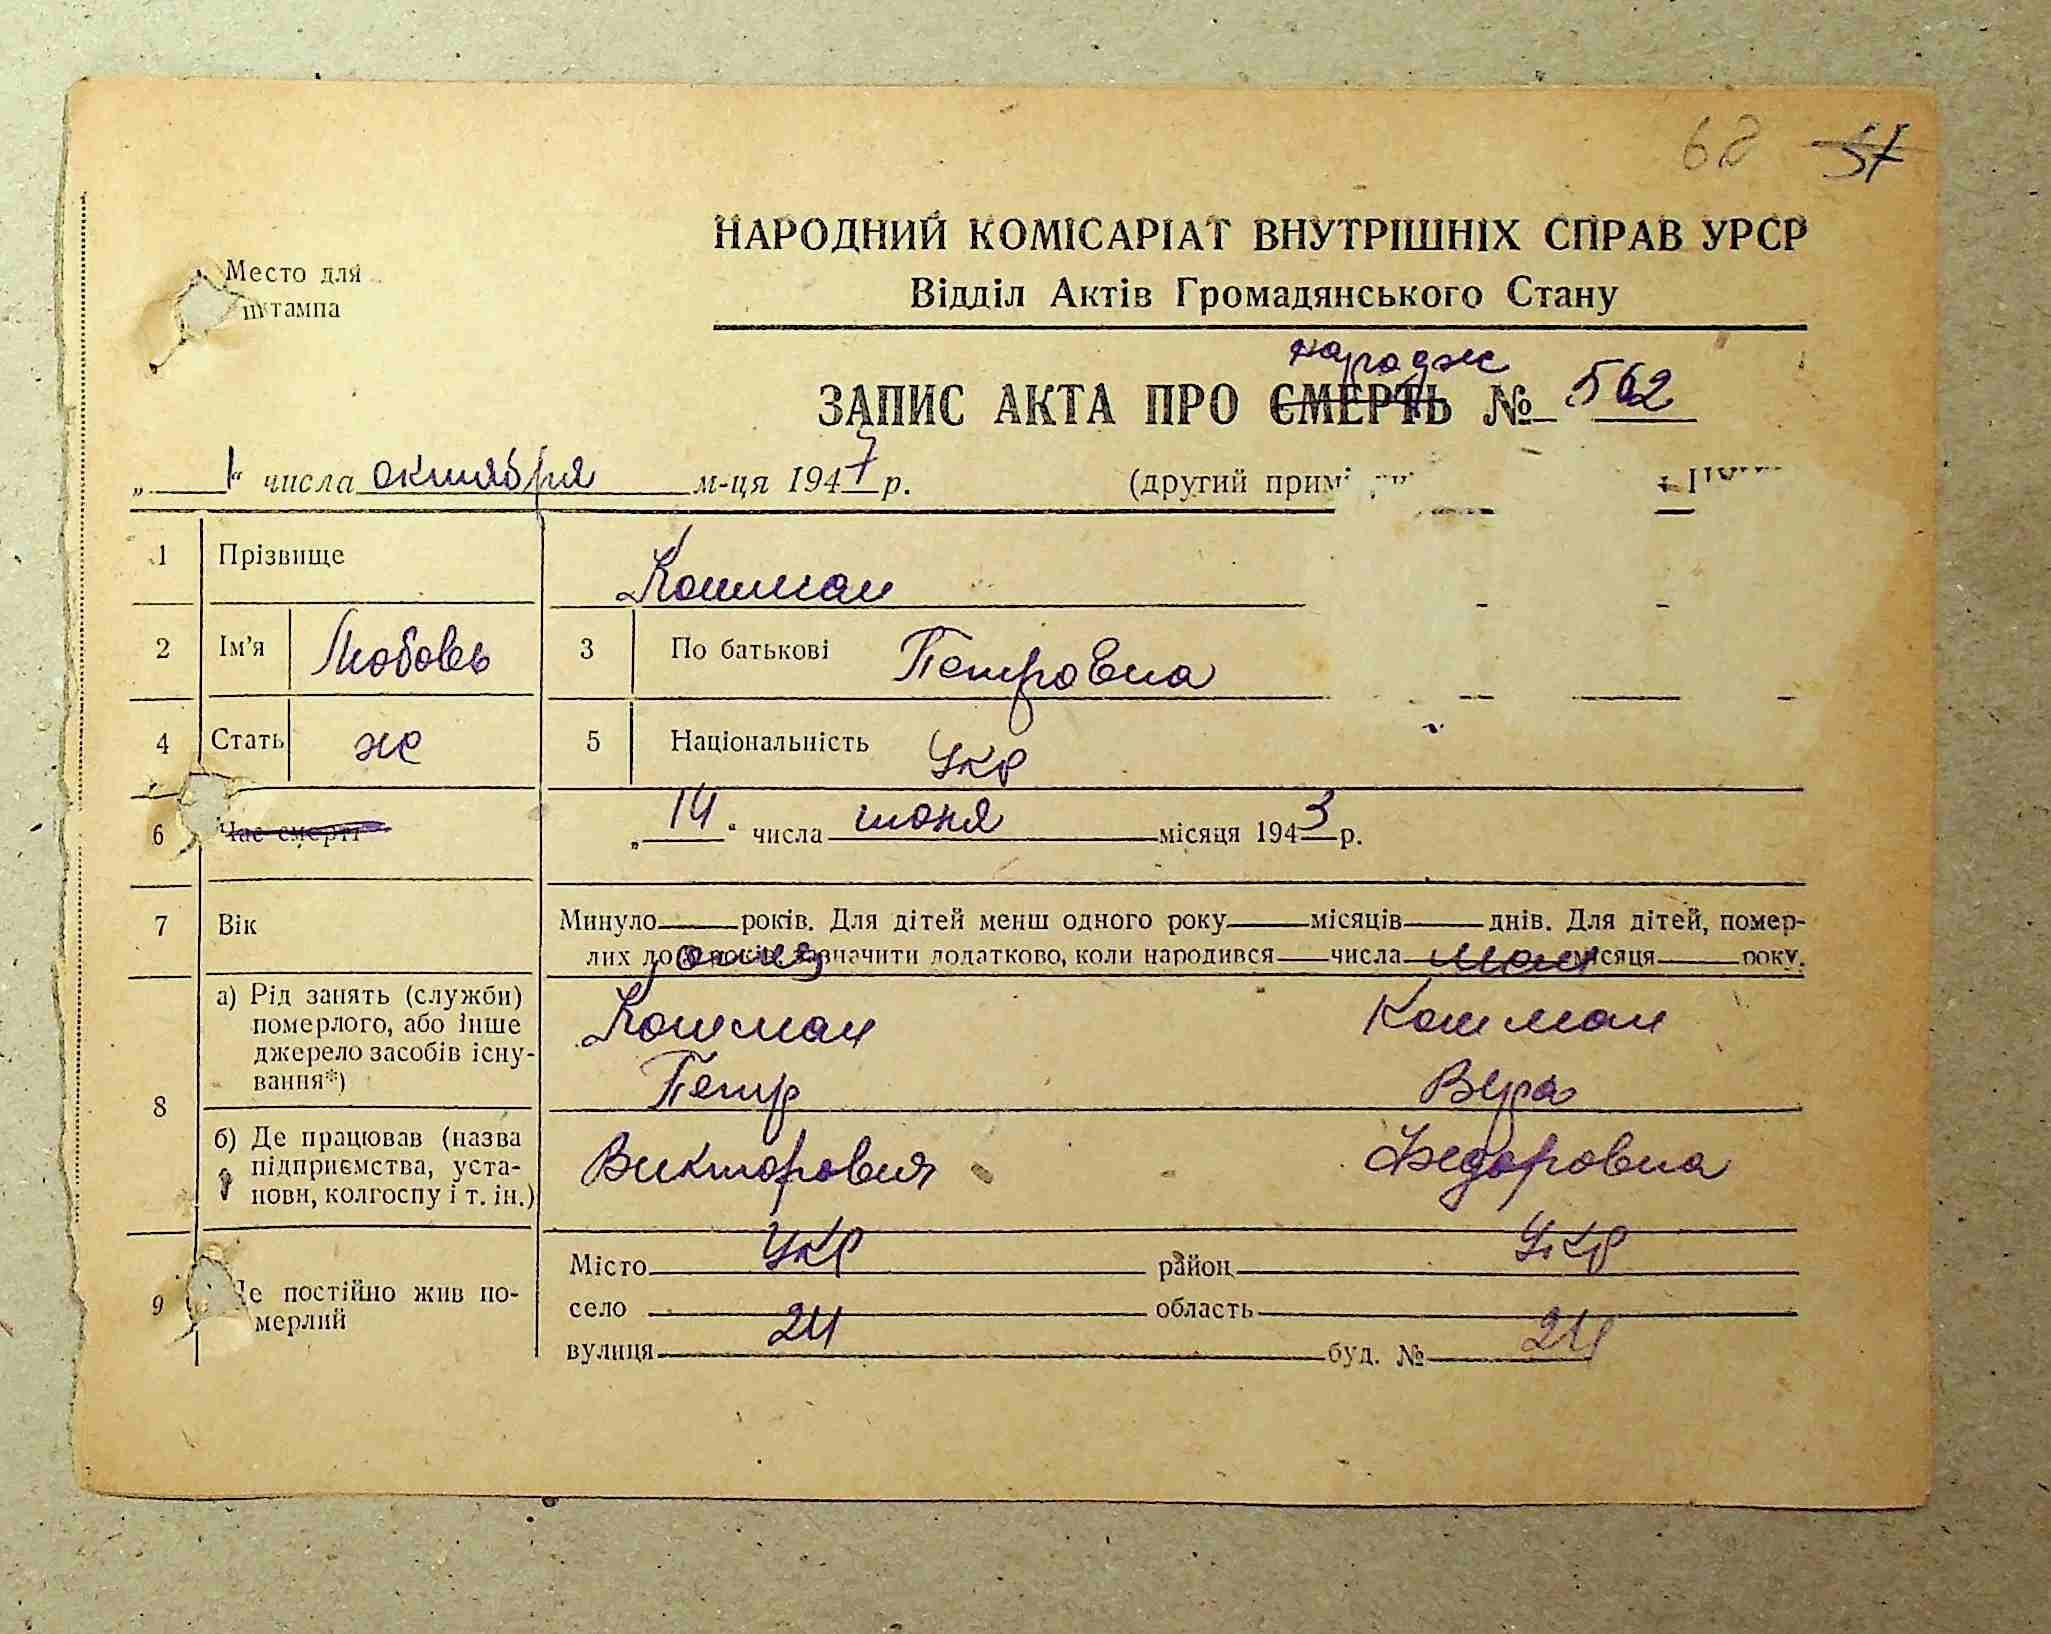 68 57
НАРОДНИЙ КОМІСАРІАТ ВНУТРІШНІХ СПРАВ УРСР
Место для
штампа
Відділ Актів Громадянського Стану
народж
ЗАПИС АКТА ПРО СМЕРТЬ № 562
„ 1 “ числа октября м-ця 1947 р. (другий
1 Прізвище Кошман
2 Ім'я Любовь 3 По батькові Петровна
4 Стать ж 5 Національність Укр
6 Час смерті „ 14 “ числа июня місяця 1943 р.
7 Вік Минуло року років. Для дітей менш одного року місяців днів. Для дітей, помер-
лих до зазначити додатково, коли народився числа місяця року.
отец мать
8 а) Рід занять (служби)
померлого, або інше
джерело засобів існу-
вання*)
Кошман Кошман
Петр Вера
б) Де працював (назва
підприємства, уста-
нови, колгоспу і т. ін.)
Викторович Федоровна
9 Де постійно жив по-
мерлий
Місто Укр район Укр
село область
вулиця 24 буд. № 24